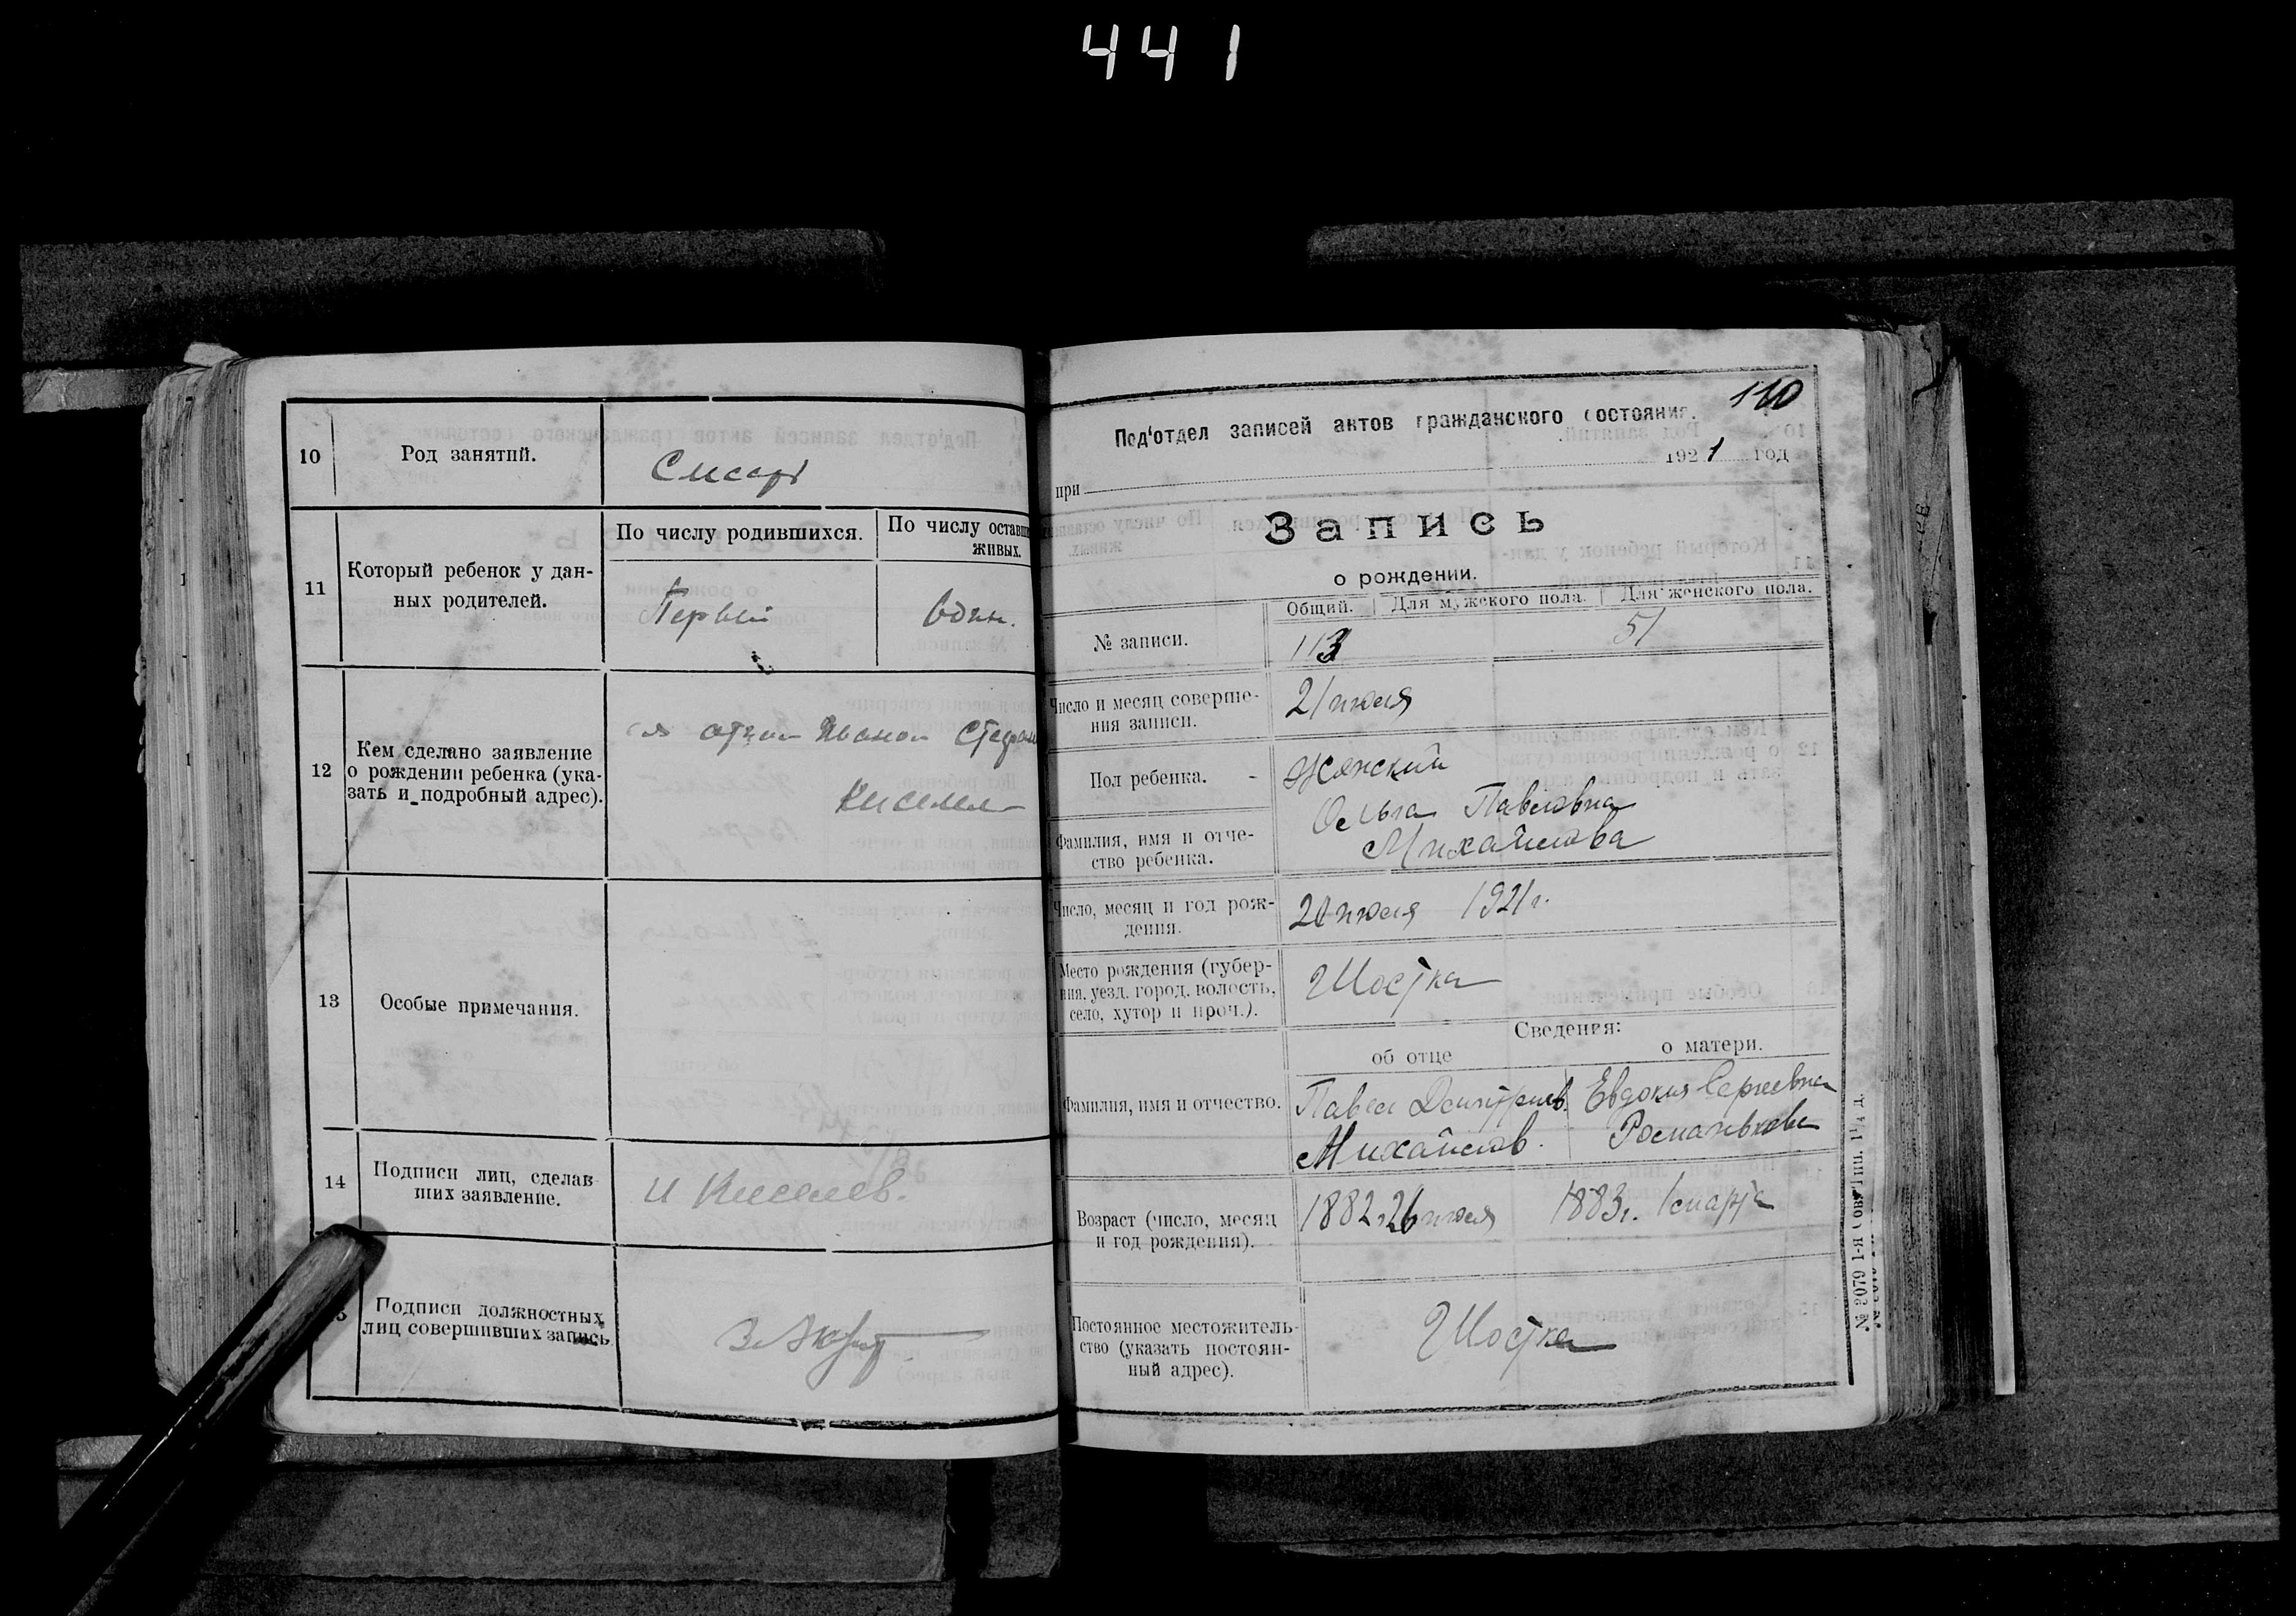 441
10
Род занятий.
Слесарь
11
Который ребенок у дан-
ных родителей.
По числу родившихся.
По числу оставш
живых.
Первый
Один.
12
Кем сделано заявление
о рождении ребенка (ука-
зать и подробный адрес).
отцом Иваном Стефан
Киселев
13
Особые примечания.
14
Подписи лиц, сделав-
ших заявление.
И Киселев.
Подписи должностных
лиц совершивших запись
110
Под'отдел записей актов гражданского состояния.
при 1921 год
Запись
о рождении.
Общий. Для мужского пола. Для женского пола.
№ записи.
113
51
Число и месяц соверше-
ния записи.
21 июля
Пол ребенка.
Женский
Фамилия, имя и отче-
ство ребенка.
Ольга Павловна
Михайлова
Число, месяц и год рож-
дения.
20 июля 1921 г.
Место рождения (губер-
ния. уезд. город. волость,
село, хутор и проч.).
Шостка
Сведения:
об отце
о матери.
Фамилия, имя и отчество.
Павел Дмитриев.
Михайлов.
Евдокия Сергеевна
Возраст (число, месяц
и год рождения).
1882 г. 26 июля
1883 г. 1 марта
Постоянное местожитель-
ство (указать постоян-
ный адрес).
Шостка